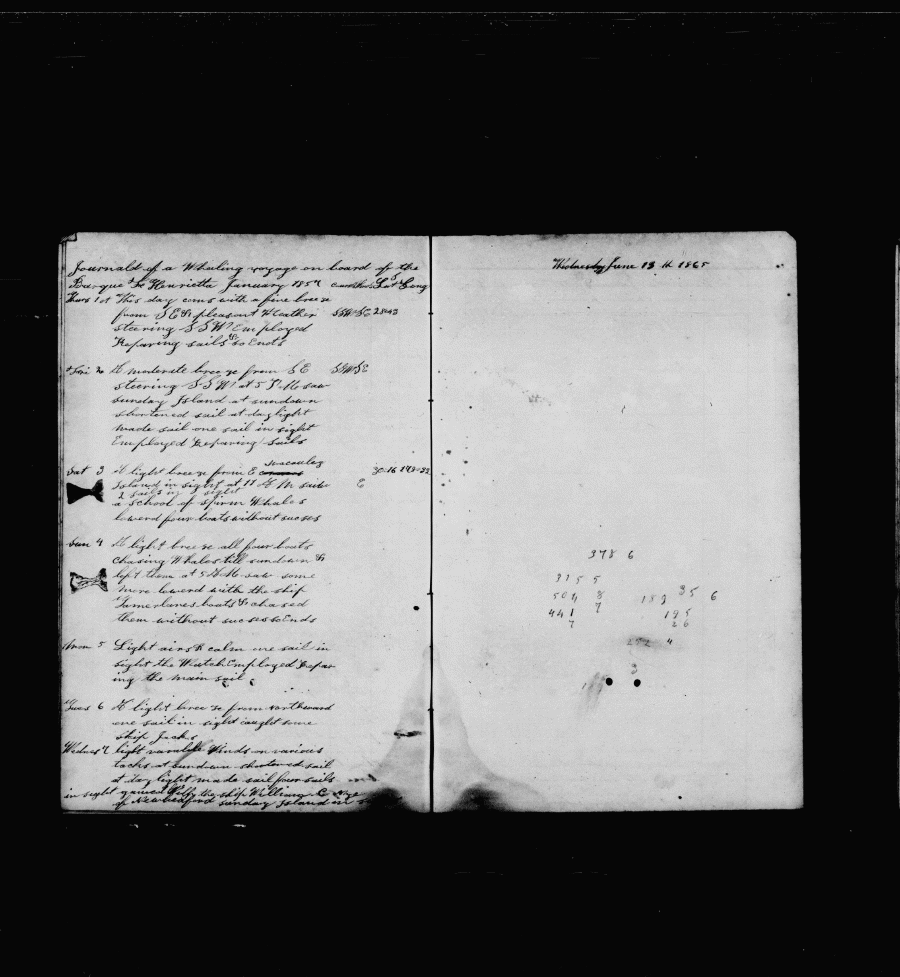 Journald of a Whaling voyage on board of the
Barque Henrietta January 1857 courses Lat Long
Thurs 1st This day coms with a fine breeze
from SE & pleasant Weather SSW SE 2843
steering SSW Employed
Reparing sails & so Ends
Fri 2 A moderate breeze from SE SSW SE
steering SSW at 5 P.M saw
sunday Island at sundown
shortened sail at daylight
made sail one sail in sight
Employed Reparing sails
Sat 3 A light breeze from E 30-16
Island in sight at 11 A M saw E
2 sails in sight
a school of spirm Whales
lowerd four boats without sucses
Sun 4 A light breeze all four boats
chasing Whales till sundown &
left them at 5 A.M. saw some
more lowerd with the ship
Tamerlanes boats & chased
them without sucses so Ends
Mon 5 Light airs & calm one sail in
sight the Watch Employed Repar
ing the main sail
Tues 6 A light breeze from northward
one sail in sight caught some
skip Jacks
Wednes 7 light variable Winds on various
tacks at sundown shortened sail
at daylight made sail four sails
in sight the ship William C Nye
of Newbedford sunday Island in
Wednesday June 13 th 1865
378 6
3155
504 8 189 35 6
441 7 195
7 26
4
3